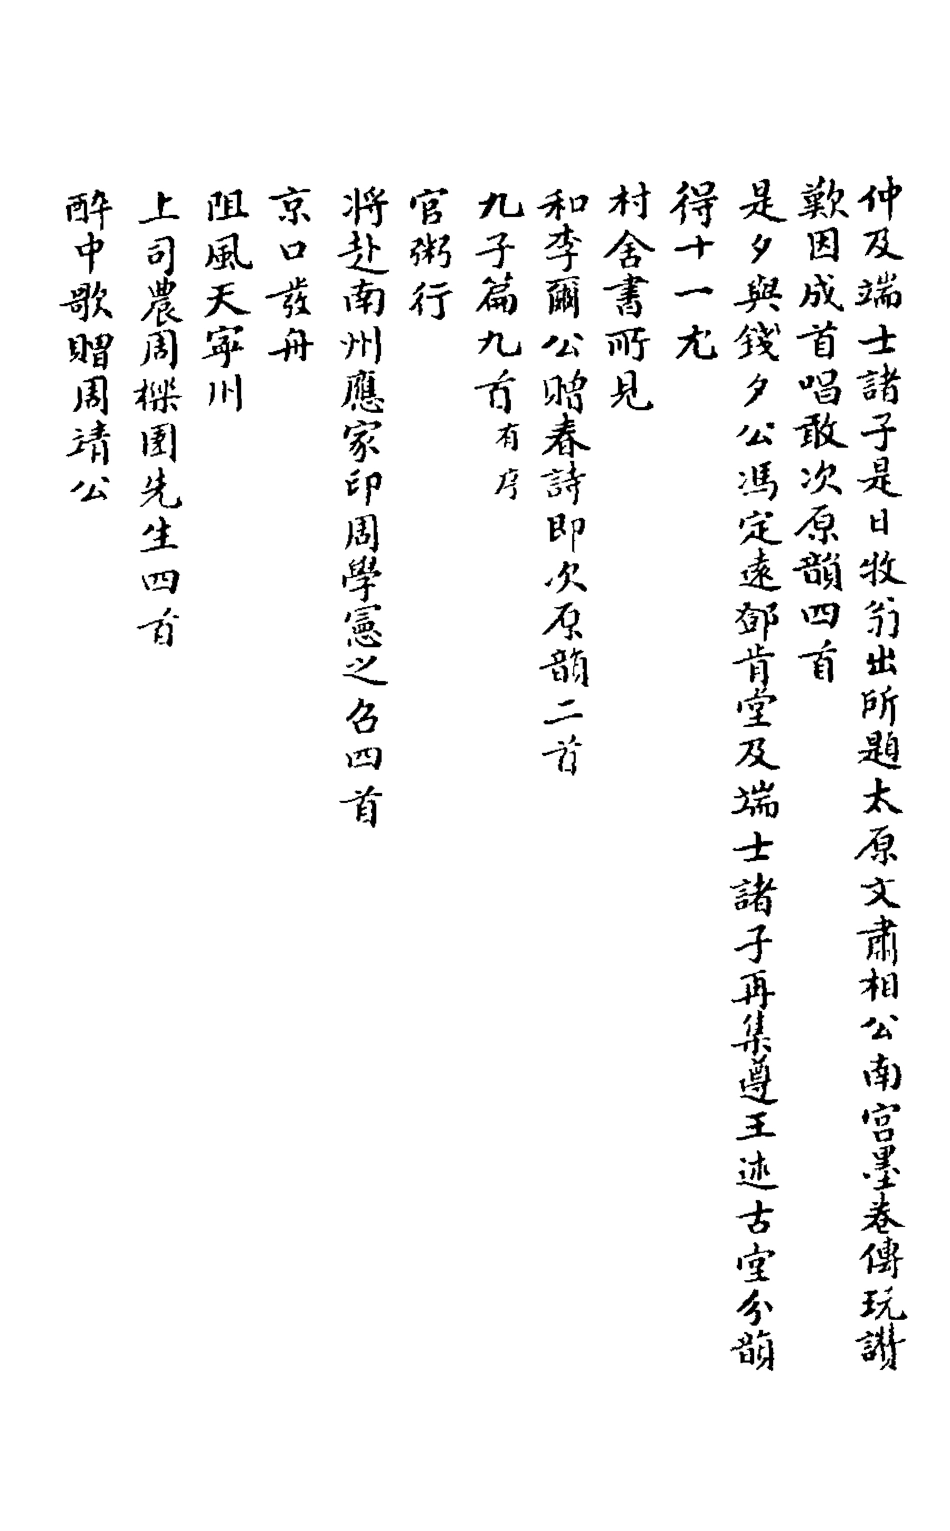 仲及端士諸子是日牧翁出所題太原文肅相公南宮墨卷傳玩讚
歎因成首唱敢次原韻四首
是夕與錢夕公馮定遠鄧肯堂及端士諸子再集遵王述古堂分韻
得十一尤
村舍書所見
和李爾公贈春詩即次原韻二首
九子篇九首有序
官粥行
將赴南州應家印周學憲之召四首
京口發舟
阻風天寧川
上司農周櫟園先生四首
醉中歌贈周靖公